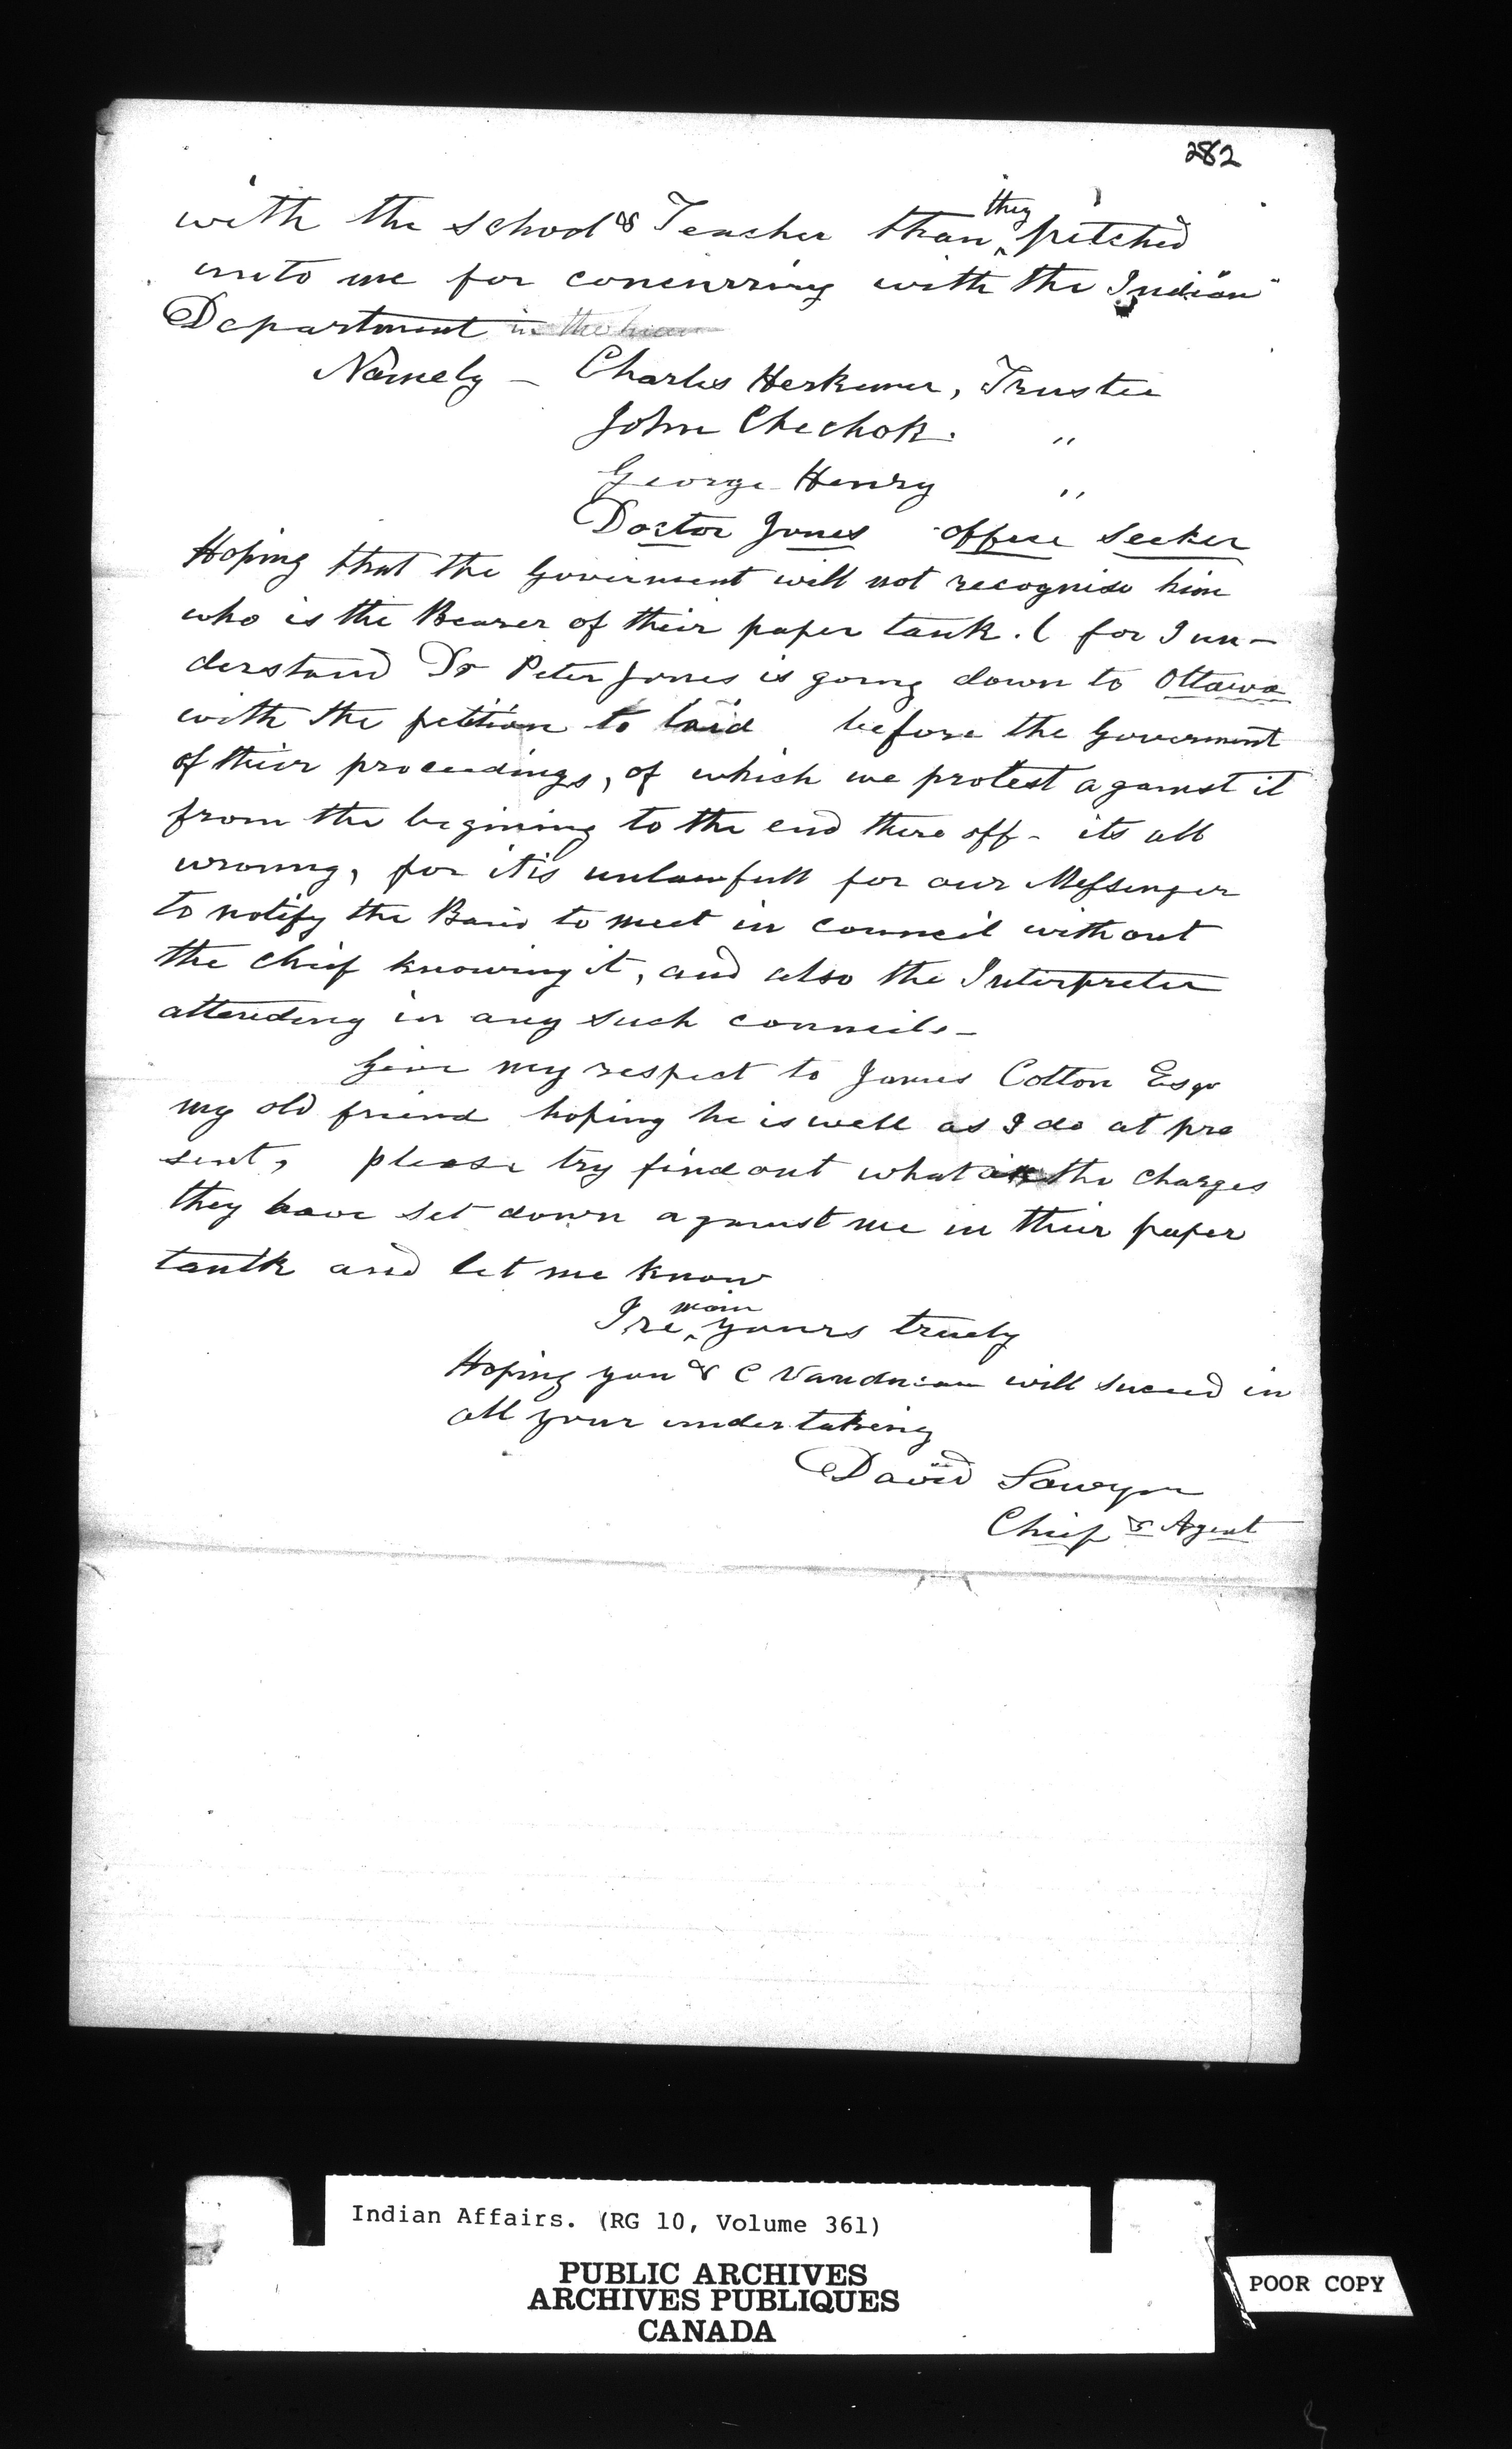 282
with the school & Teacher than they pitched
unto me for concurring with the Indian
Department in the
Namely – Charles Herkimer, Trustee
John Chechok. "
George Henry "
Doctor Jones office seeker
Hoping that the Goverment will not recognise him
who is the Bearer of their paper tauk. ( for I un-
derstand Dr Peter Jones is going down to Ottawa
with the petition to laid before the Goverment
of their proceedings, of which we protest against it
from the begining to the end there off - its all
wronng, for itis unlawfull for our Messenger
to notify the Band to meet in council without
the chief knowing it, and also the Interpreter
attending in any such councils –
Give my respect to James Cotton Esqr
my old friend hoping he is well as I do at pre
sent, please try find out what the charges
they have set down against me in their paper
tautk and let me know
I remain yours truely
Hoping you & C will succeed in
all your undertaking
David Sawyer
Chief & Agent
Indian Affairs. (RG 10, Volume 361)
PUBLIC ARCHIVES
ARCHIVES PUBLIQUES
CANADA
POOR COPY